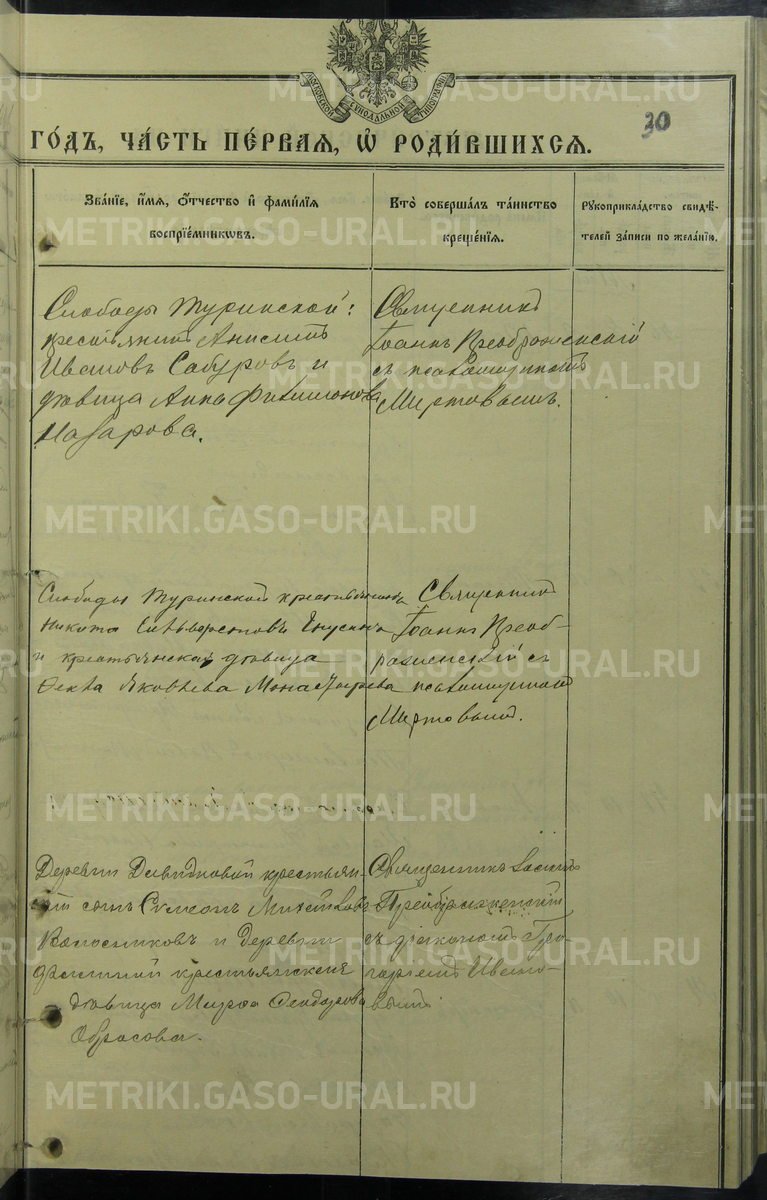 МОСКОВСКОЙ СѴНОДАЛЬНОЙ ТИПОГРАФІИ
30
ГО́ДЪ, ЧА́СТЬ ПЕ́РВАЯ, Ѡ҆ РОДИ́ВШИХСЯ.
Зва́нїе, и҆́мя, ѻ҆́тчество и҆ фами́лїя
воспрїе́мникѡвъ.
Кто̀ соверша́лъ та́инство
креще́нїя.
Рꙋкоприкла́дство свидѣ́-
телей за́писи по жела́нїю.
Слободы Туринской:
крестьянинъ Анисимъ
Ивановъ Сабуровъ и
дѣвица Анна Филимонова
Назарова.
Священникъ
Іоаннъ Преображенскій
съ псаломщикомъ
Мертовымъ.
Слободы Туринской крестьянинъ
Никита Сильверстовъ
и крестьянская дѣвица
Ѳекла Яковлева Монастырева
Священникъ
Іоаннъ Преоб-
раженскій съ
псаломщикомъ
Мертовымъ.
Деревни Давыдковой крестьян-
сынъ Симеонъ Михайловъ
и Деревни
крестьянская
дѣвица Ѳеодорова
Священникъ Іоаннъ
Преображенскій
съ діакономъ Гри-
горіемъ Ивано-
вымъ
METRIKI.GASO-URAL.RU